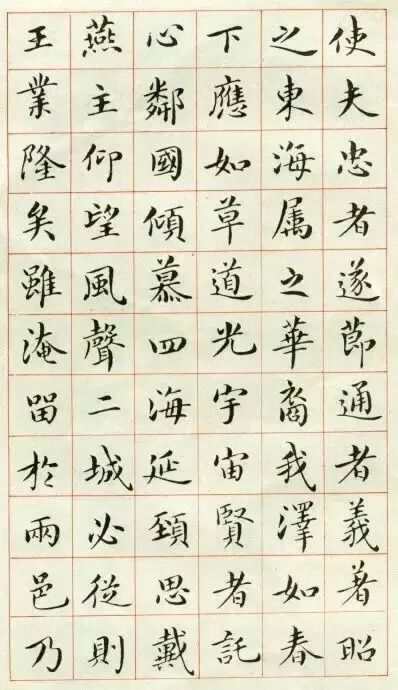 使夫忠者遂節通者義著昭
之東海属之華裔我澤如春
下應如草道光宇宙賢者託
心鄰國傾慕四海延頸思戴
燕主仰望風聲二城必從則
王業隆矣雖淹留於兩邑乃